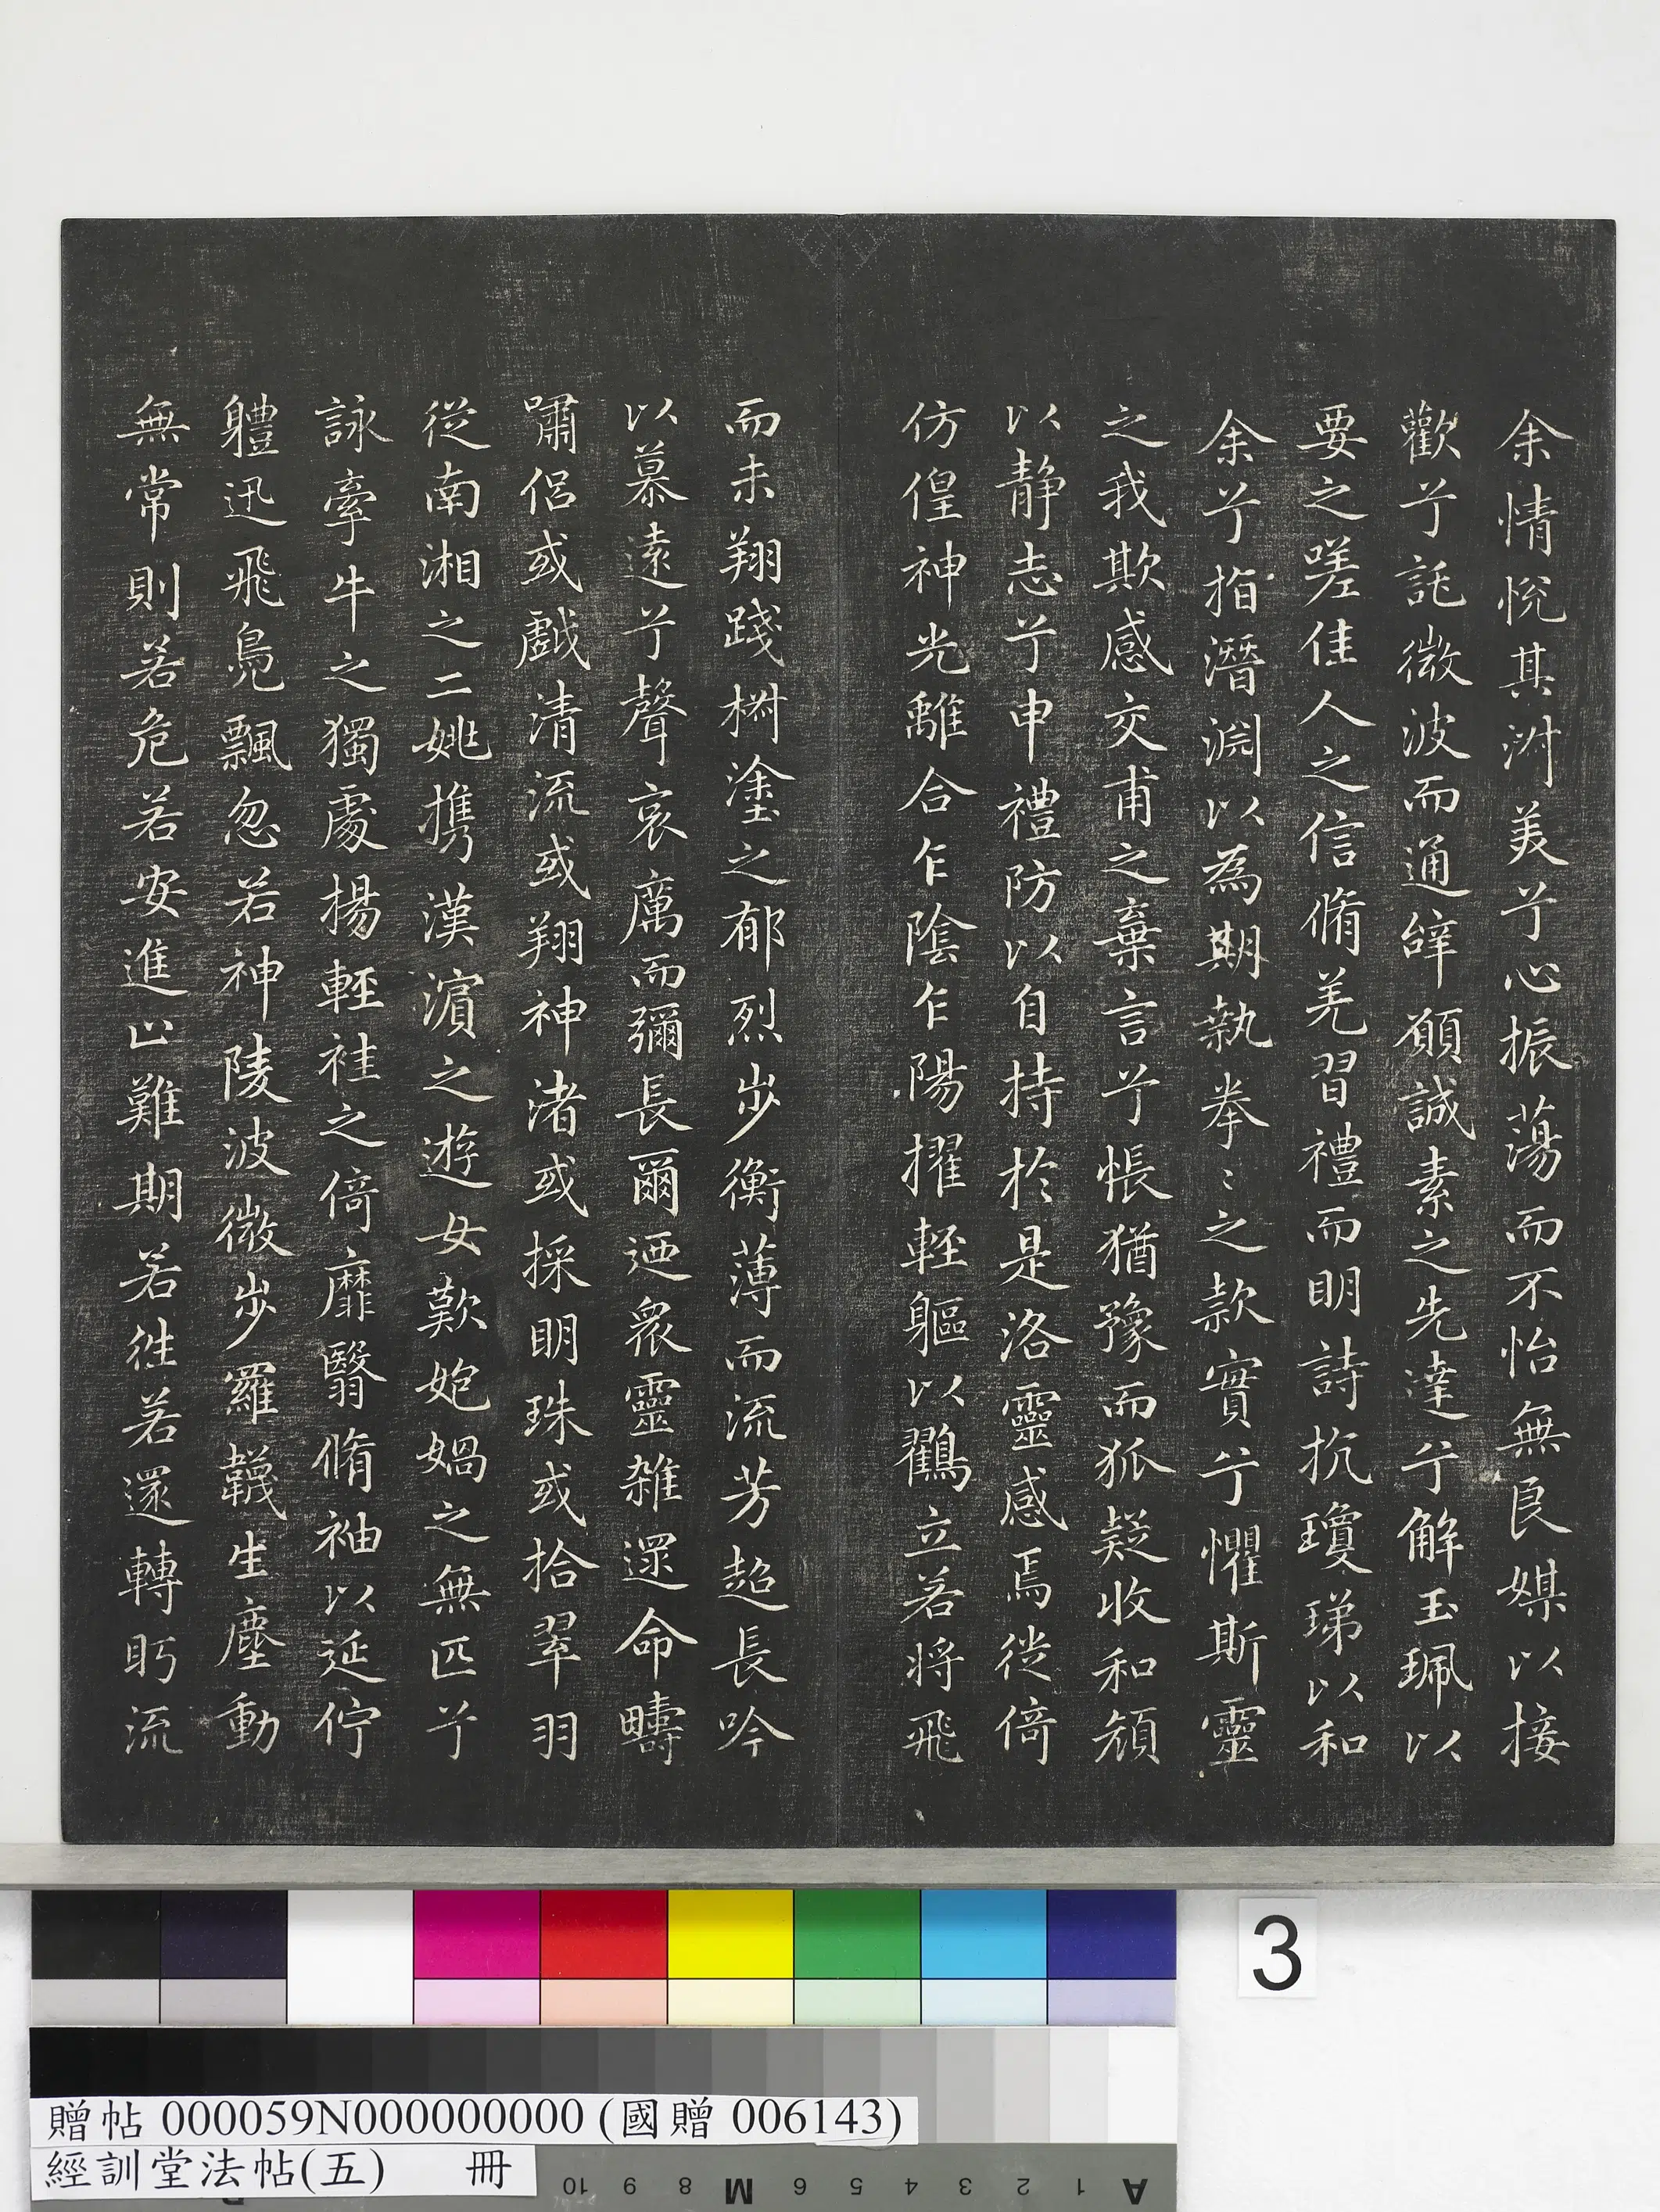 余情悅其淑美兮心振蕩而不怡無良媒以接
歡兮託微波而通辭願誠素之先達兮解玉珮以
要之嗟佳人之信脩羌習禮而明詩抗瓊珶以和
余兮指潛淵以為期執拳〻之款實兮懼斯靈
之我欺感交甫之棄言兮悵猶豫而狐疑收和顏
以静志兮申禮防以自持於是洛靈感焉徙倚
仿偟神光離合乍陰乍陽擢輕軀以鶴立若将飛
而未翔踐椒塗之郁烈步衡薄而流芳超長吟
以慕遠兮聲哀厲而彌長爾迺衆靈雜還命疇
嘯侶或戲清流或翔神渚或採明珠或拾翠羽
從南湘之二姚攜漢濱之遊女歎匏媧之無匹兮
詠牽牛之獨處揚輕袿之倚靡翳脩袖以延佇
體迅飛鳧飄忽若神陵波微步羅韈生塵動
無常則若危若安進止難期若往若還轉眄流
3
贈帖 000059N000000000 (國贈 006143)
經訓堂法帖(五) 冊
10 9 8 M 6 5 4 3 2 1 A